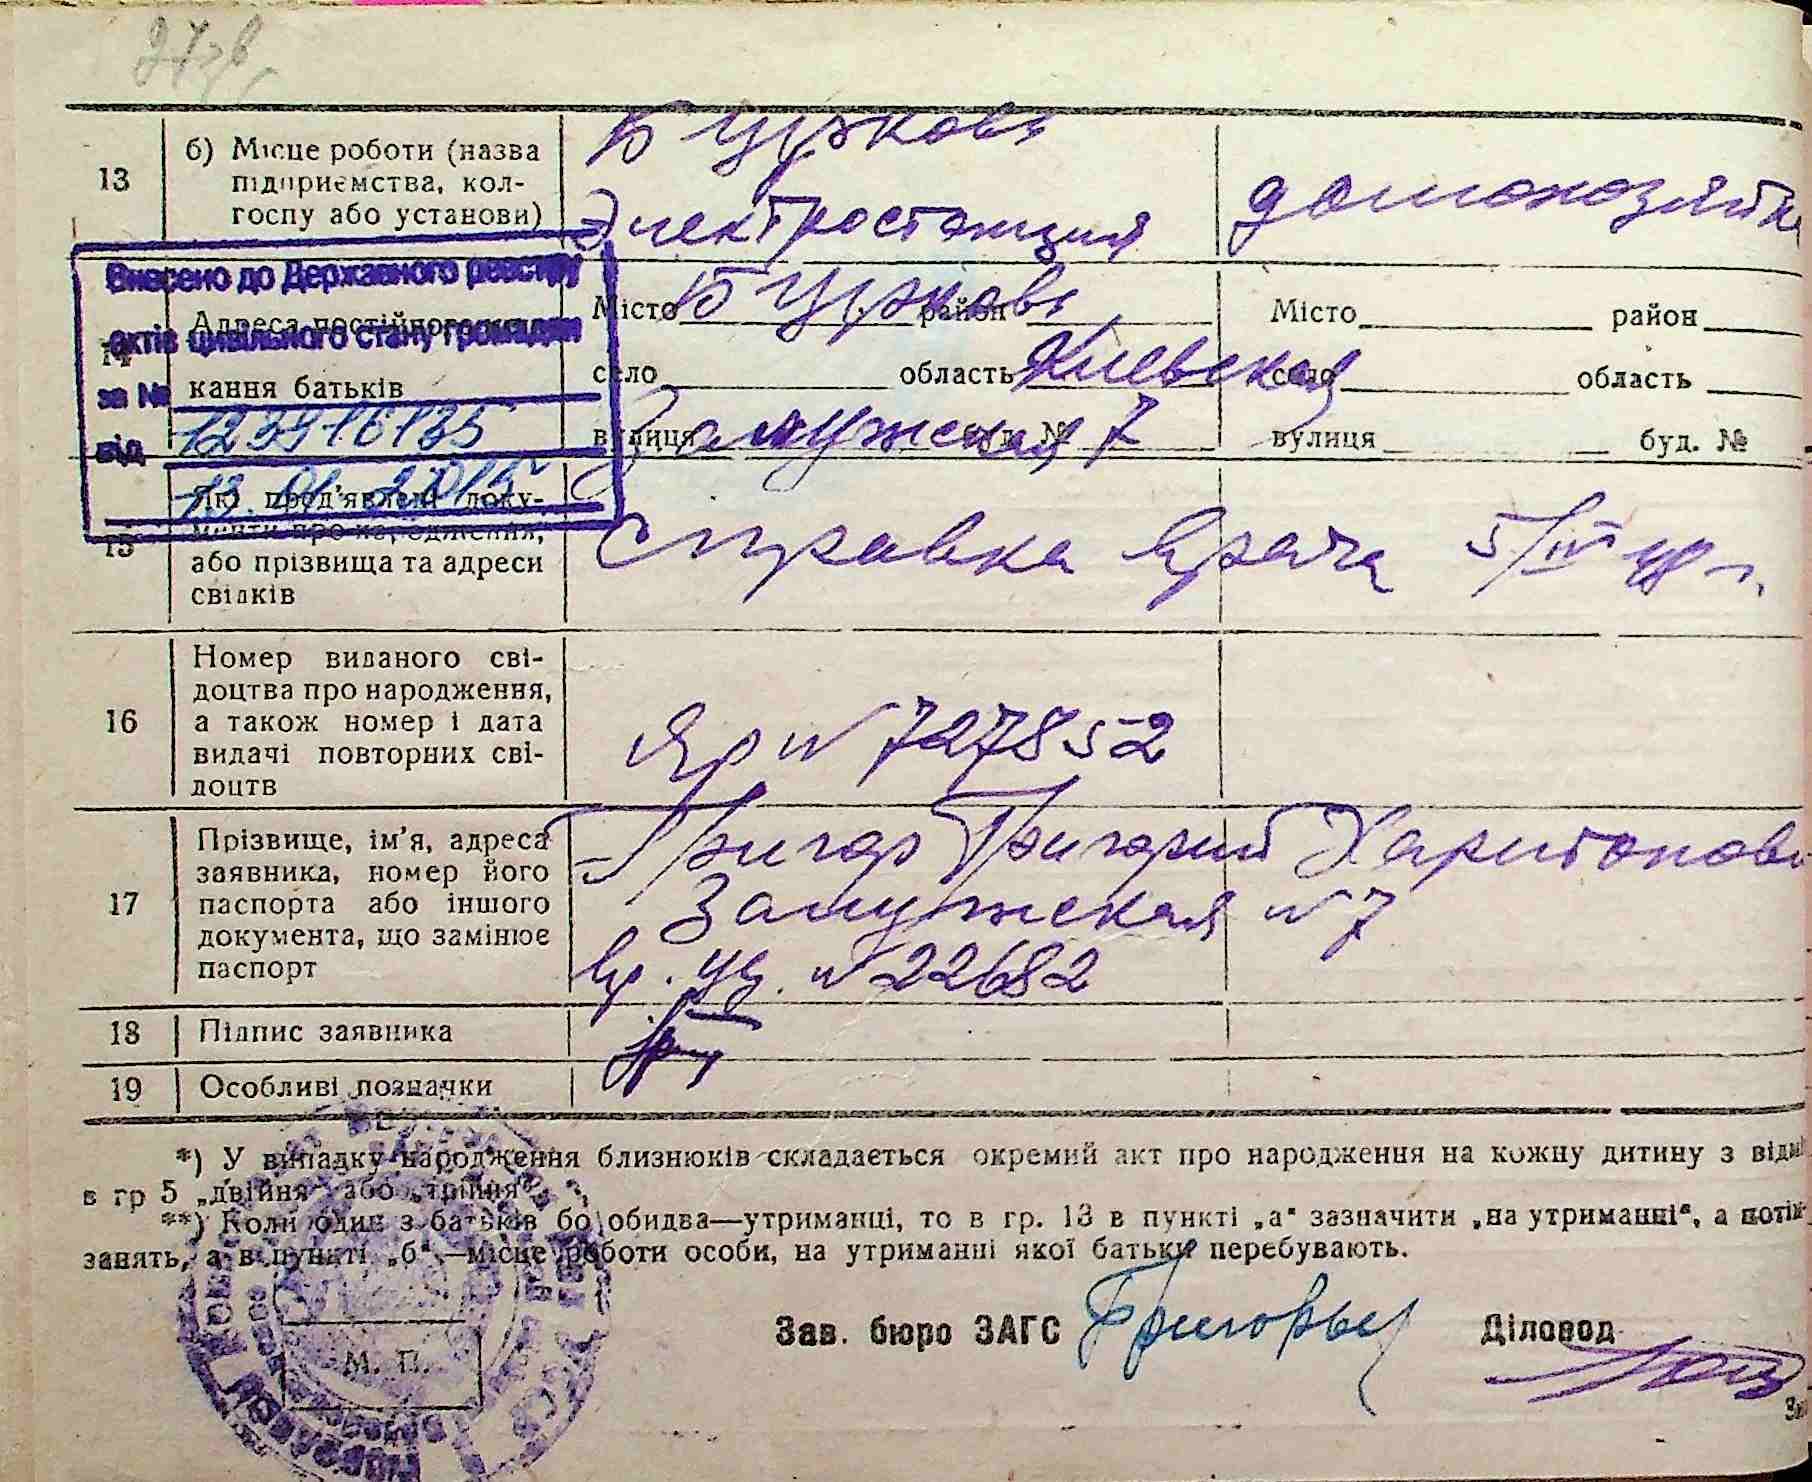 27зв
13
б) Місце роботи (назва
підприємства, кол-
госпу або установи)
Б Церковь
Электростанция
домохозяйка
Внесено до Державного реєстру
актів цивільного стану громадян
за №
123916135
від
13. 01. 2015
14
Адреса постійного
кання батьків
Місто Б Церковь район
село область Киевская
вулиця Замужская № 7
Місто район
село область
вулиця буд. №
15
Які пред'явлені доку-
менти про народження,
або прізвища та адреси
свідків
Справка врача 5/IV 48 г.
16
Номер виданого сві-
доцтва про народження,
а також номер і дата
видачі повторних сві-
доцтв
Яр № 727852
17
Прізвище, ім'я, адреса
заявника, номер його
паспорта або іншого
документа, що замінює
паспорт
Григор Григорий Харитонови
Замужская № 7
вр. уд. № 22682
18
Підпис заявника
19
Особливі позначки
*) У випадку народження близнюків складається окремий акт про народження на кожну дитину з відмі
в гр 5 „двійня" або „трійня".
**) Коли один з батьків бо обидва—утриманці, то в гр. 13 в пункті „а" зазначити „на утриманні", а потім
занять, а в пункті „б"—місце роботи особи, на утриманні якої батьки перебувають.
Зав. бюро ЗАГС
Діловод
М. П.